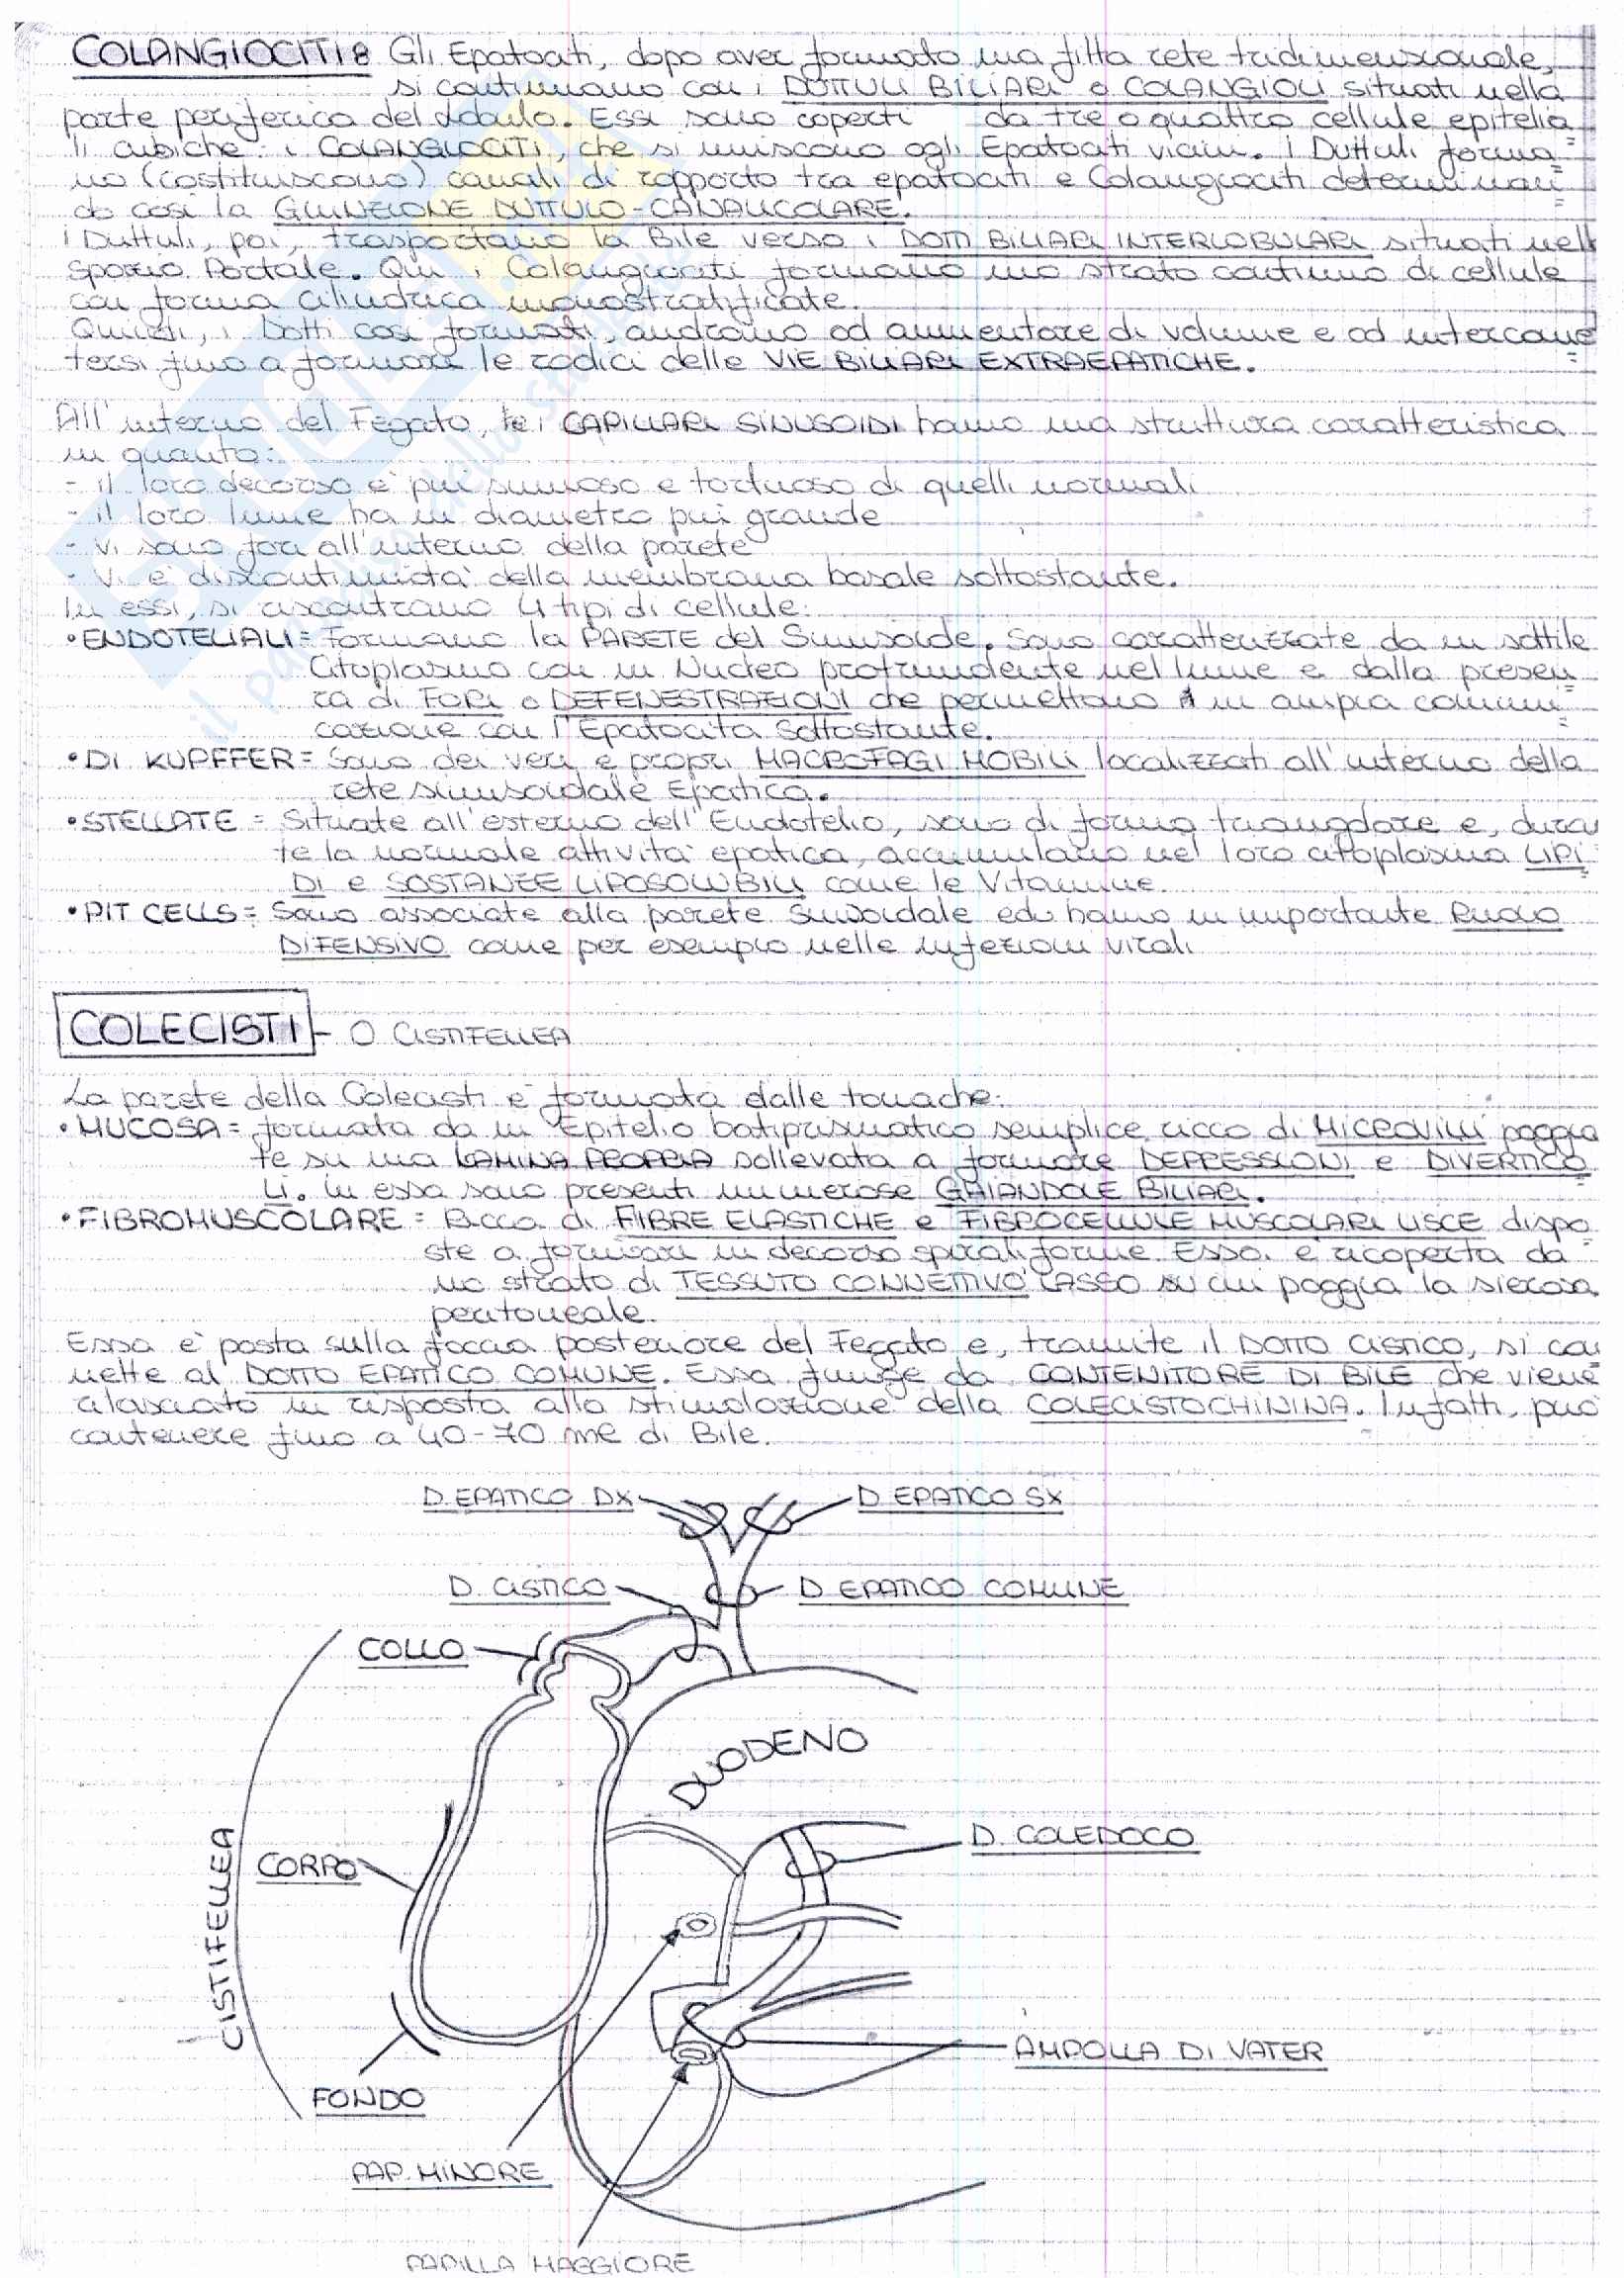 COLANGIOCITI: Gli Epatociti, dopo aver formato una fitta rete tridimensionale,
si continuano con i DUTTULI BILIARI o COLANGIOLI situati nella
parte periferica del lobulo. Essi sono coperti da tre o quattro cellule epitelia=
li cubiche: i COLANGIOCITI, che si uniscono agli Epatociti vicini. I Duttuli forma=
no (costituiscono) canali di rapporto tra epatociti e Colangiociti determinan=
do così la GIUNZIONE DUTTULO-CANALICOLARE.
I Duttuli, poi, trasportano la Bile verso i DOTTI BILIARI INTERLOBULARI situati nello
Spazio Portale. Qui i Colangiociti formano uno strato continuo di cellule
con forma cilindrica monostratificate.
Quindi, i Dotti così formati, andranno ad aumentare di volume e ad interconne=
tersi fino a formare le radici delle VIE BILIARI EXTRAEPATICHE.
All'interno del Fegato, i CAPILLARI SINUSOIDI hanno una struttura caratteristica
in quanto:
- il loro decorso è più sinuoso e tortuoso di quelli normali
- il loro lume ha un diametro più grande
- vi sono fori all'interno della parete
- vi è discontinuità della membrana basale sottostante.
In essi, si riscontrano 4 tipi di cellule:
• ENDOTELIALI = Formano la PARETE del Sinusoide. Sono caratterizzate da un sottile
Citoplasma con un Nucleo protrundente nel lume e dalla presen=
za di FORI o DEFENESTRAZIONI che permettono un ampia comuni=
cazione con l'Epatocita Sottostante.
• DI KUPFFER = Sono dei veri e propri MACROFAGI MOBILI localizzati all'interno della
rete sinusoidale Epatica.
• STELLATE = Situate all'esterno dell'Endotelio, sono di forma triangolare e, duran
te la normale attività epatica, accumulano nel loro citoplasma LIPI=
DI e SOSTANZE LIPOSOLUBILI come le Vitamine.
• PIT CELLS = Sono associate alla parete Sinusoidale ed hanno un importante RUOLO
DIFENSIVO come per esempio nelle infezioni virali
COLECISTI - O CISTIFELLEA
La parete della Colecisti è formata dalle tonache:
• MUCOSA = formata da un Epitelio batiprismatico semplice ricco di MICROVILLI poggia
te su una LAMINA PROPRIA sollevata a formare DEPRESSIONI e DIVERTICO
LI. In essa sono presenti numerose GHIANDOLE BILIARI.
• FIBROMUSCOLARE = Ricca di FIBRE ELASTICHE e FIBROCELLULE MUSCOLARI LISCE dispo=
ste a formare un decorso spiraliforme. Essa è ricoperta da
uno strato di TESSUTO CONNETTIVO LASSO su cui poggia la sierosa
peritoneale.
Essa è posta sulla faccia posteriore del Fegato e, tramite il DOTTO CISTICO, si con
nette al DOTTO EPATICO COMUNE. Essa funge da CONTENITORE DI BILE che viene
rilasciato in risposta alla stimolazione della COLECISTOCHININA. Infatti, può
contenere fino a 40-70 ml di Bile.
D. EPATICO DX
D EPATICO SX
D. CISTICO
D EPATICO COMUNE
COLLO
DUODENO
D. COLEDOCO
CORPO
CISTIFELLEA
AMPOLLA DI VATER
FONDO
PAP. MINORE
PAPILLA MAGGIORE